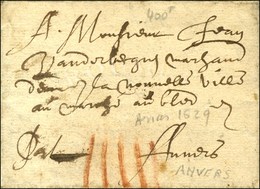 400
A Monsieur Jean
Vanderbergue marchand
dem. a la nouvelle ville
au marche au bled
Anvers 1629
Anvers
ANVERS